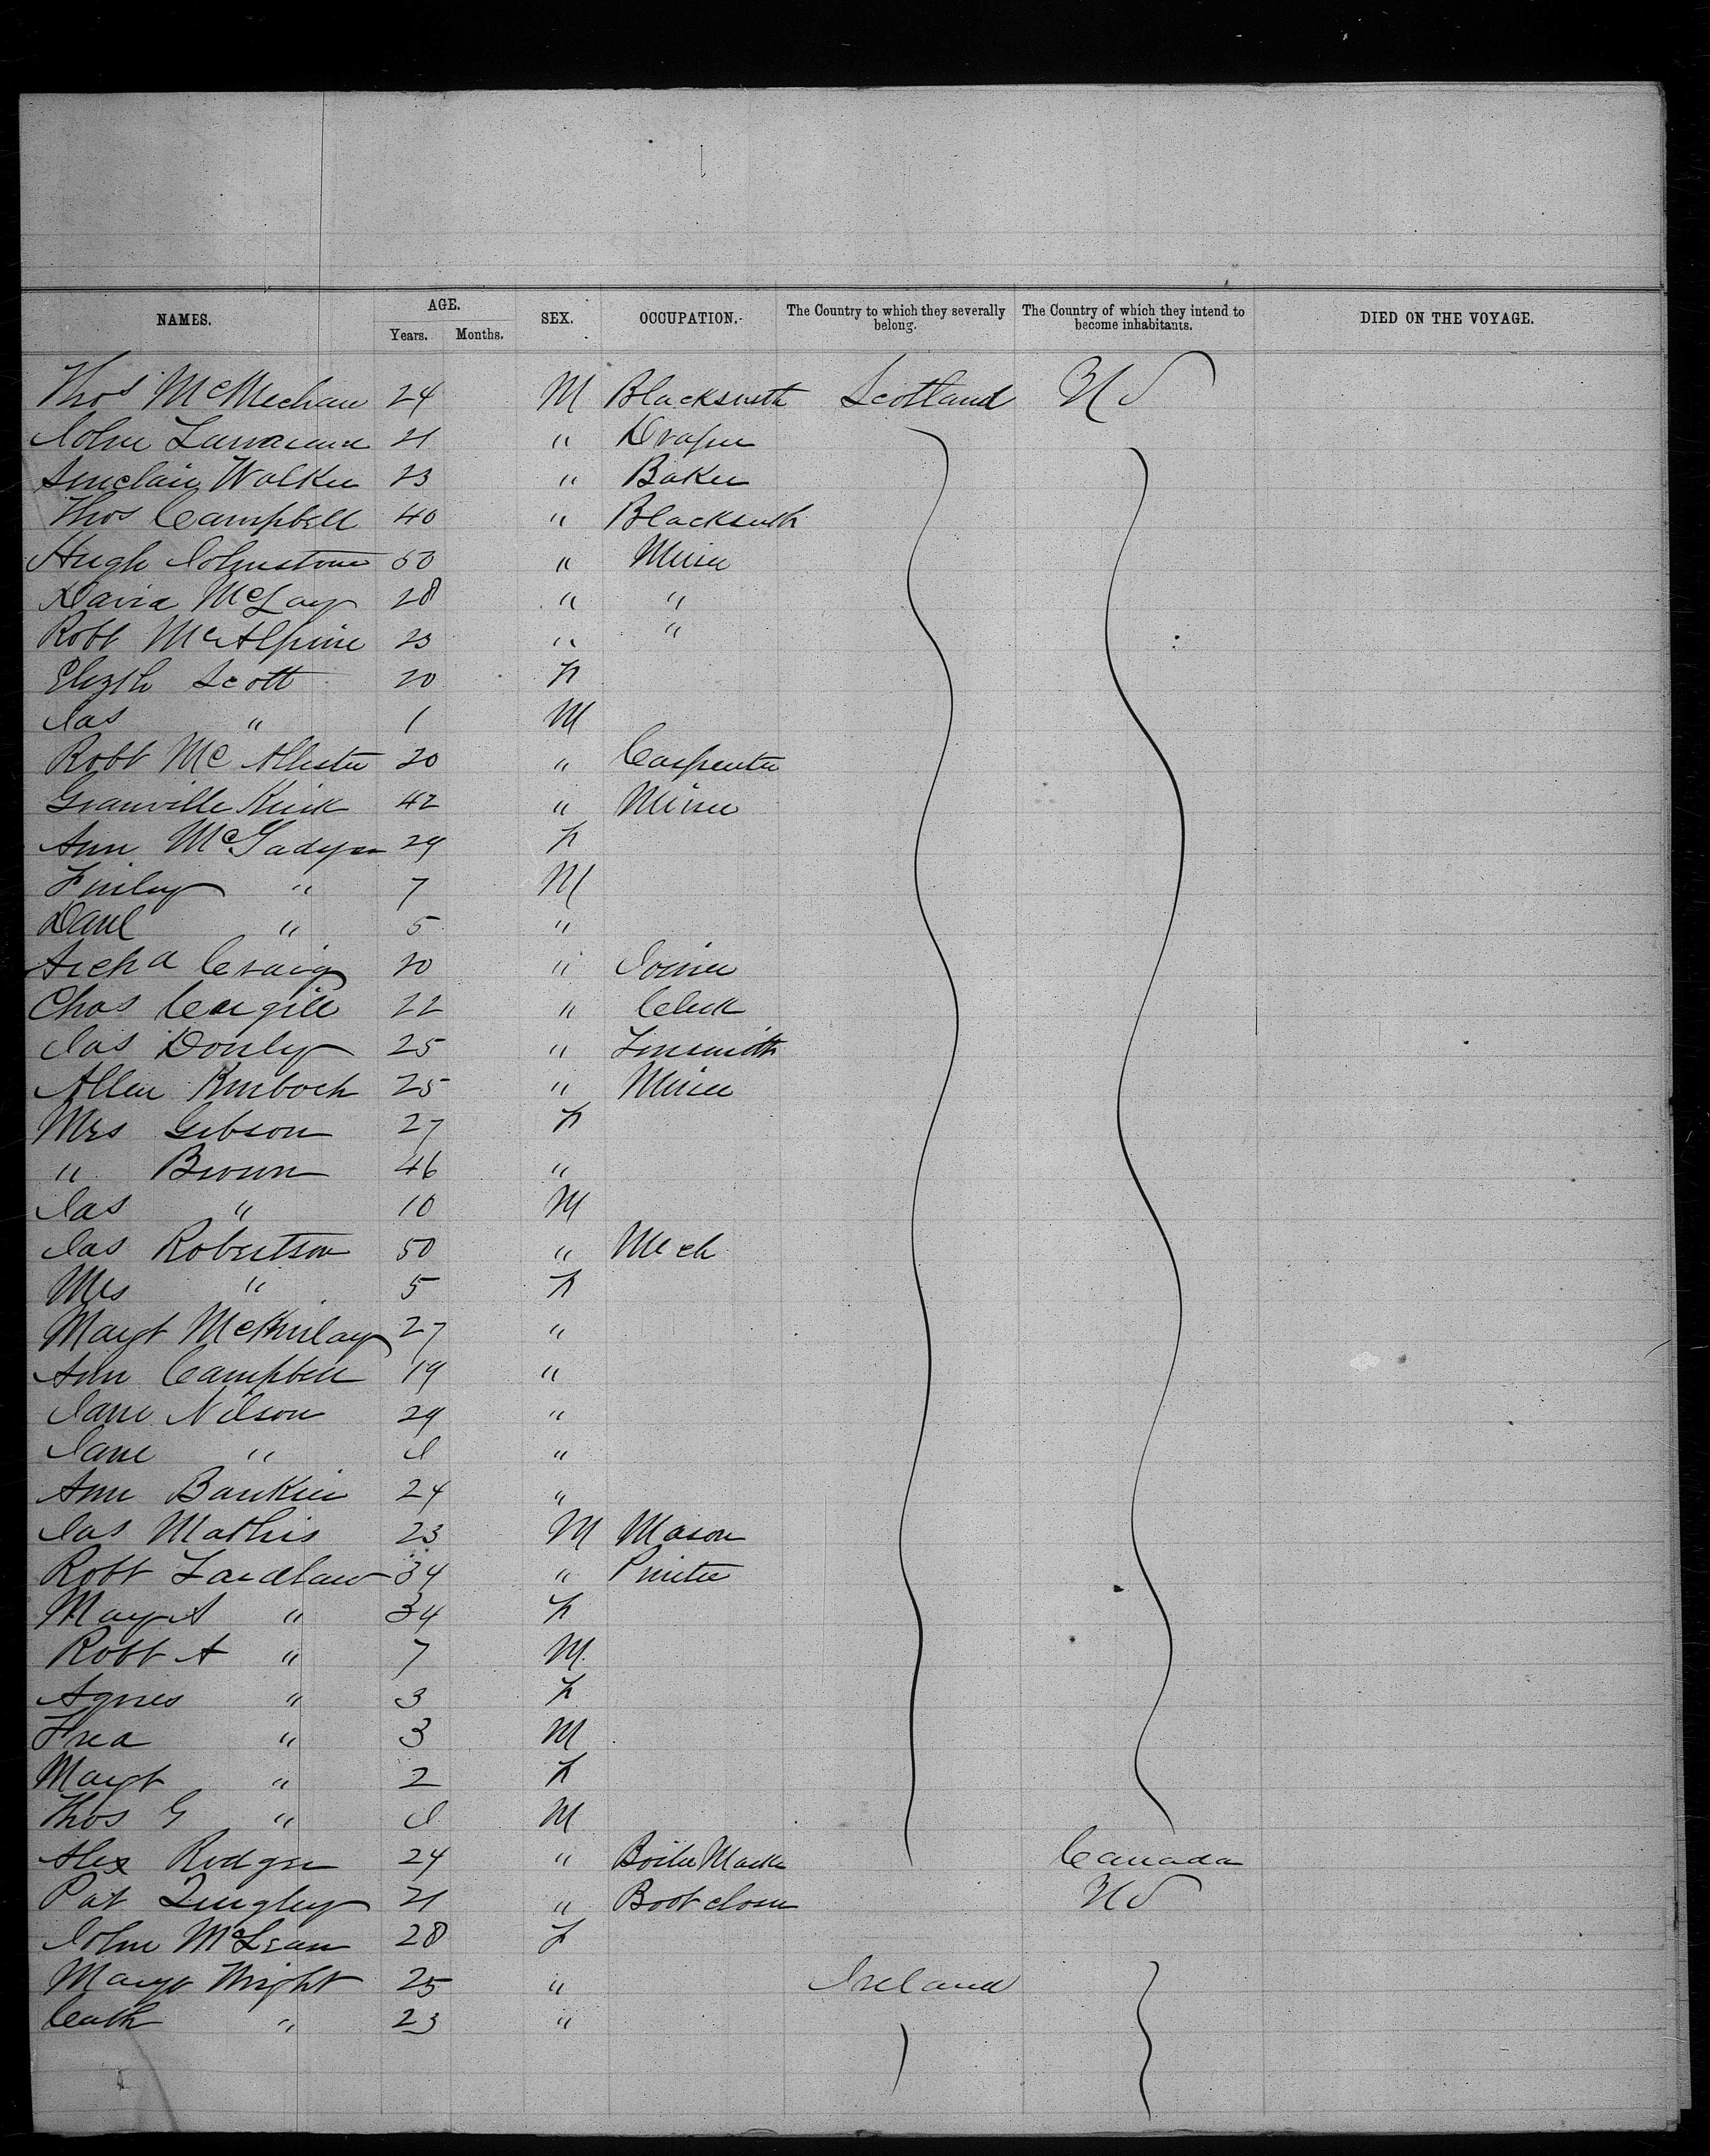 NAMES. AGE. SEX. OCCUPATION. The Country to which they severally belong. The Country of which they intend to become inhabitants. DIED ON THE VOYAGE.
Years. Months.
Thos McMechan 24 M Blacksmith Scotland US
John 21 " Draper
Sinclair Walker 23 " Baker
Thos Campbell 40 " Blacksmith
Hugh Johnstone 50 " Miner
David McLay 28 " "
Robt McAlpine 23 " "
Elizth Scott 20 F
Jas " 1 M
Robt McAllister 20 " Carpenter
Granville Kirk 42 " Miner
Ann McFadyen 29 F
Finlay " 7 M
Danl " 5 "
Archd Craig 20 " Joiner
Chas Cargill 22 " Clerk
Jas Donly 25 " Tinsmith
Allen 25 " Miner
Mrs Gibson 27 F
" Brown 46 "
Jas " 10 M
Jas Robertson 50 " Mech
Mrs " 5 F
Margt McKinlay 27 "
Ann Campbell 19 "
Jane Nilson 29 "
Jane " "
Ann Bankin 24 "
Jas Mathis 23 M Mason
Robt Laidlaw 34 " Printer
Mary A " 34 F
Robt A " 7 M
Agnes " 3 F
Fred " 3 M
Margt " 2 F
Thos G " M
Alex Rodger 24 " Boiler Maker Canada
Pat Quigley 21 " Boot closer US
John McLean 28 F
Margt Wright 25 " Ireland
Cath " 23 "